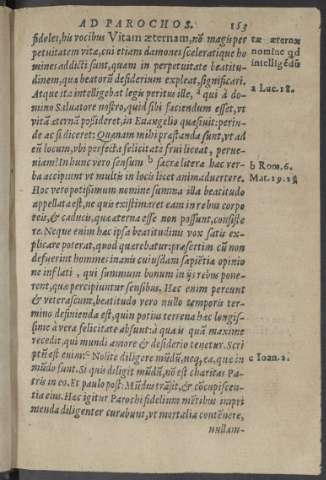 AD PAROCHOS. 153
fideles, his vocibus Vitam æternam, nõ magis per
petuitatem vitæ, cui etiam dæmones sceleratique ho
mines addicti sunt, quam in perpetuitate beatitu-
dinem, quæ beatorũ desiderium expleat, significari.
Atque ita intelligebat legis peritus ille, ª qui à do-
mino Salvatore nostro, quid sibi faciendum esset, vt
vitã æternã possideret, in Euangelio quæsiuit: perin-
de ac si diceret: Quænam mihi præstanda sunt, vt ad
eũ locum, vbi perfecta felicitate frui liceat, perue-
niam? In hunc vero sensum ᵇ sacræ literæ hæc ver-
ba accipiunt vt multis in locis licet animaduertere.
Hoc vero potissimum nomine summa illa beatitudo
appellata est, ne quis existimaret eam in rebus corpo
reis, & caducis, quæ æternæ esse non possunt, consiste
re. Neque enim hæc ipsa beatitudinis vox satis ex-
plicare poterat, quod quærebatur: præsertim cũ non
defuerint homines inanis cuiusdam sapiẽtiæ opinio
ne inflati, qui summum bonum in ijs rebus pone-
rent, quæ percipiuntur sensibus. Hæc enim pereunt
& veterascunt, beatitudo vero nullo temporis ter-
mino definienda est, quin potius terrena hæc longis-
sime à vera felicitate absunt: à qua is quã maxime
recedit, qui mundi amore & desiderio tenetur. Scri
ptũ est enim: ᶜ Nolite diligere mũdũ, neq, ea, quæ in
mũdo sunt. Si quis diligit mũdũ, nõ est charitas Pa-
tris in eo. Et paulo post: Mũdus trãsit, & cõcupiscen-
tia eius. Hæc igitur Parochi fidelium mẽtibus impri
menda diligenter curabunt, vt mortalia contẽnere,
nullam-
tæ æternæ
nomine qd
intelligẽdũ
a Luc. 18.
b Rom. 6.
Mat. 19. 25
c Ioan. 2.